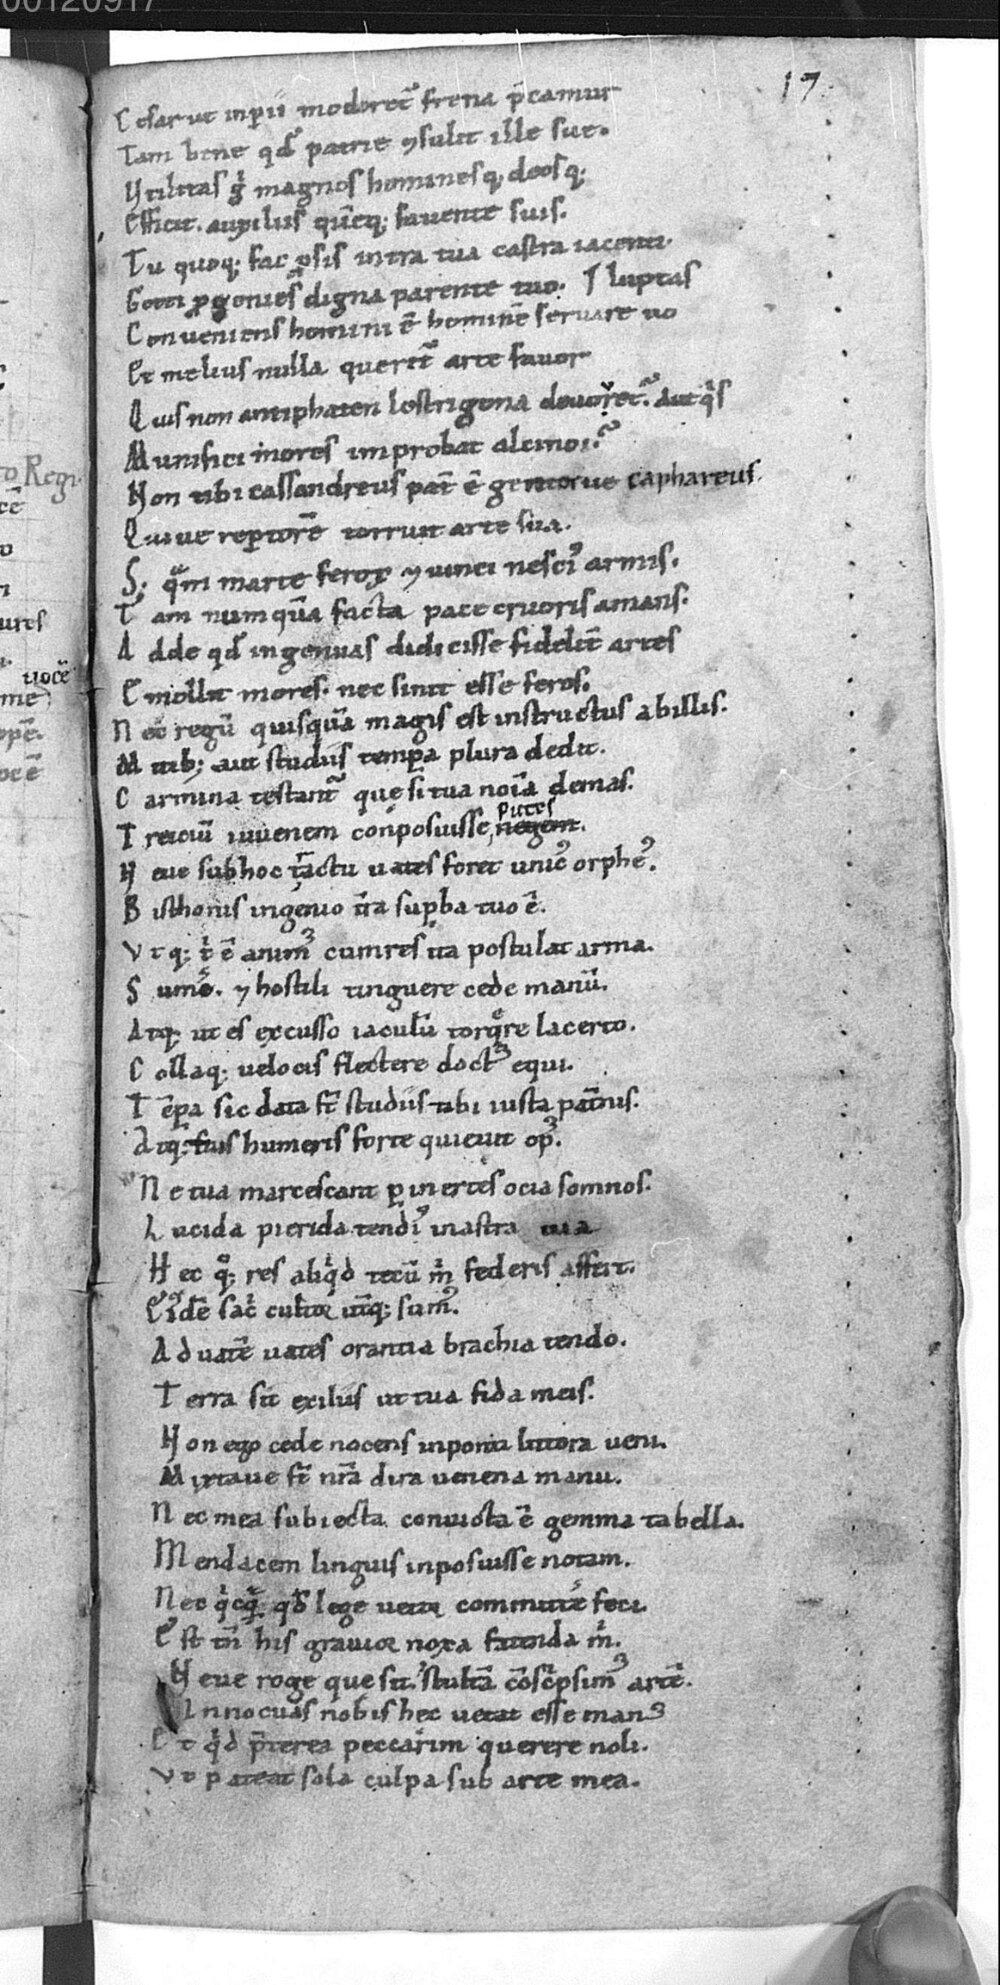 00120917
17
Cesar ut inp̄ii moderet᷑ frena p̄camur
Tam bene qđ patrie ꝯsulit ille sue.
Utilitas g̊ magnos hominesq; deosq;
Efficit. auxiliis quēq; fauente suis.
Tu quoq; fac ꝓsis intra tua castra iacenti.
Cotti ꝓgenies digna parente tuo. luptas
Conueniens homini ē hominē seruare uo
Et melius nulla querit᷑ arte fauor
Quis non antiphaten lestrigona deuoret. Aut qͥs
Munifici mores improbat alcinoi.
Non tibi cassandreus pat̄ ē gentisue caphareus.
Quiue reptorē torruit arte sua.
S; qᷓm marte ferox ꝯ uinci nesciꝰ armis.
Tam numquā facta pace cruoris amans.
Adde qđ ingenuas didicisse fidelit̄ artes
Emollit mores. nec sinit esse feros.
Nec regū quisquā magis est instructus ab illis.
Mitib; aut studiis tempa plura dedit.
Carmina testant᷑ que si tua noīa demas.
Treiciū iuuenem conposuisse negem.
putes
Neue sub hoc tractu uates foret unicꝰ orpheꝰ.
Bisthonis ingenio tr̄a supba tuo ē.
Utq; tͥ ē animꝰ cum res ita postulat arma.
Sumē. ꝯ hostili tinguere cede manū.
Atq; ut es excusso iaculū torq̄re lacerto.
Collaq; uelocis flectere doctꝰ equi.
Tēpa sic data st̄ studiis tibi iusta pat̄nis.
Atq; suis humeris forte quieuit opꝰ.
Ne tua marcescant p inertes ocia somnos.
Lucida pierida tendiꝰ in astra uia
Hec qͦq; res aliqͥd tecū mͥ federis affert.
Eiꝰdē sacͥ cultor ut̄q; sumꝰ.
Ad uatē uates orantia brachia tendo.
Terra sit exiliis ut tua fida meis.
Non ego cede nocens in ponti littora ueni.
Mixtaue st̄ nr̄a dira uenena manu.
Nec mea subiecta conuicta ē gemma tabella.
Mendacem linguis inposuisse notam.
Nec qͥcqᷓ qđ lege uetor committē feci.
Est tn̄ his grauior noxa fatenda mͥ.
Neue roge que sit. stultā cōscͥpsimꝰ artē.
Innocuas nobis hec uetat esse manꝰ
Et qͥd p̄terea peccarim querere noli.
Ut pateat sola culpa sub arte mea.